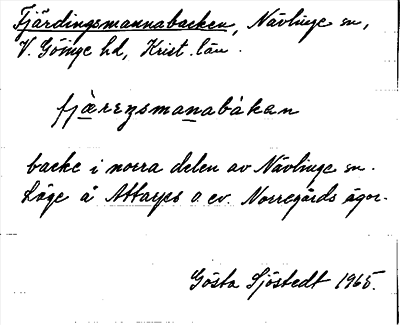 Fjärdingsmannabacken, Nävlinge sn,
V. Göinge hd, Krist. län.
fjærensmanabåkan
backe i norra delen av Nävlinge sn.
Läge å Attarps o. ev. Norregårds ägor.
Gösta Sjöstedt 1965.